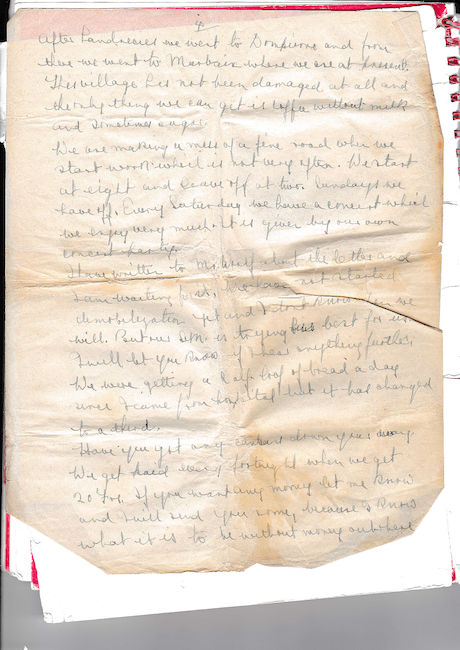 After Landrecies we went to Dompierre and from
there we went to Marbaix where we are at present.
This village has not been damaged at all and
the only thing we can get is coffee without milk
and sometimes sugar.
We are making a mess of a fine road when we
start work which is not very often. We start
at eight and leave off at two. Sundays we
have off. Every Saturday we have a concert which
we enjoy very much. It is given by our own
concert party.
I have written to Mr. about the letter and
I am waiting We have not started
demobilization yet and I dont know when we
will. But our is trying his best for us.
I will let you know if I hear anything further.
We were getting a half loaf of bread a day
since I came from hospital but it has changed
to a third.
Have you got any down your way.
We get paid every fortnight when we get
20 frs. If you want any money let me know
and I will send you some, because I know
what it is to be without money out here